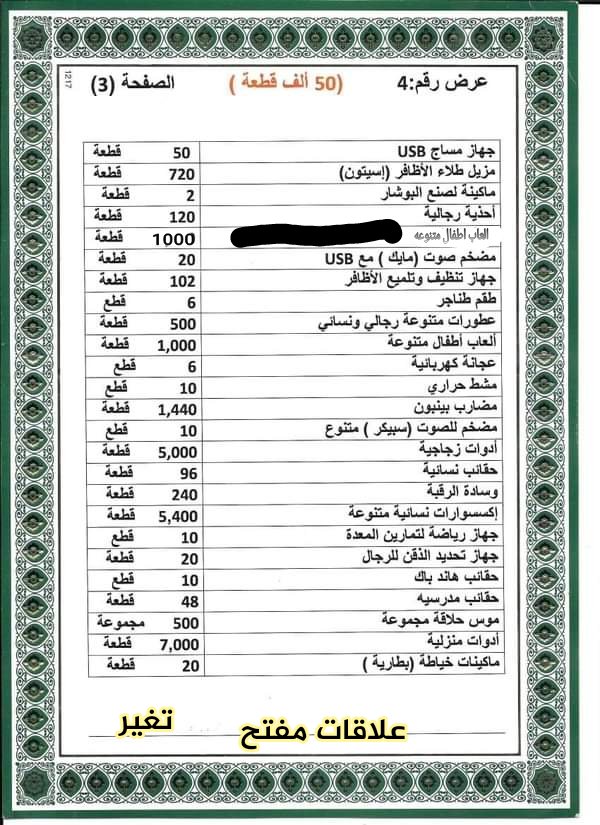 عرض رقم:4 (50 ألف قطعة ) الصفحة (3)
1217
جهاز مساج USB 50 قطعة
مزيل طلاء الأظافر (إسيتون) 720 قطعة
ماكينة لصنع البوشار 2 قطعة
أحذية رجالية 120 قطعة
العاب اطفال متنوعه 1000 قطعة
مضخم صوت (مايك ) مع USB 20 قطعة
جهاز تنظيف وتلميع الأظافر 102 قطعة
طقم طناجر 6 قطع
عطورات متنوعة رجالي ونسائي 500 قطعة
ألعاب أطفال متنوعة 1,000 قطعة
عجانة كهربائية 6 قطع
مشط حراري 10 قطع
مضارب بينبون 1,440 قطعة
مضخم للصوت (سبيكر ) متنوع 10 قطع
أدوات زجاجية 5,000 قطعة
حقائب نسائية 96 قطعة
وسادة الرقبة 240 قطعة
إكسسوارات نسائية متنوعة 5,400 قطعة
جهاز رياضة لتمارين المعدة 10 قطع
جهاز تحديد الذقن للرجال 20 قطعة
حقائب هاند باك 10 قطع
حقائب مدرسيه 48 قطعة
موس حلاقة مجموعة 500 مجموعة
أدوات منزلية 7,000 قطعة
ماكينات خياطة (بطارية ) 20 قطعة
علاقات مفتح تغير